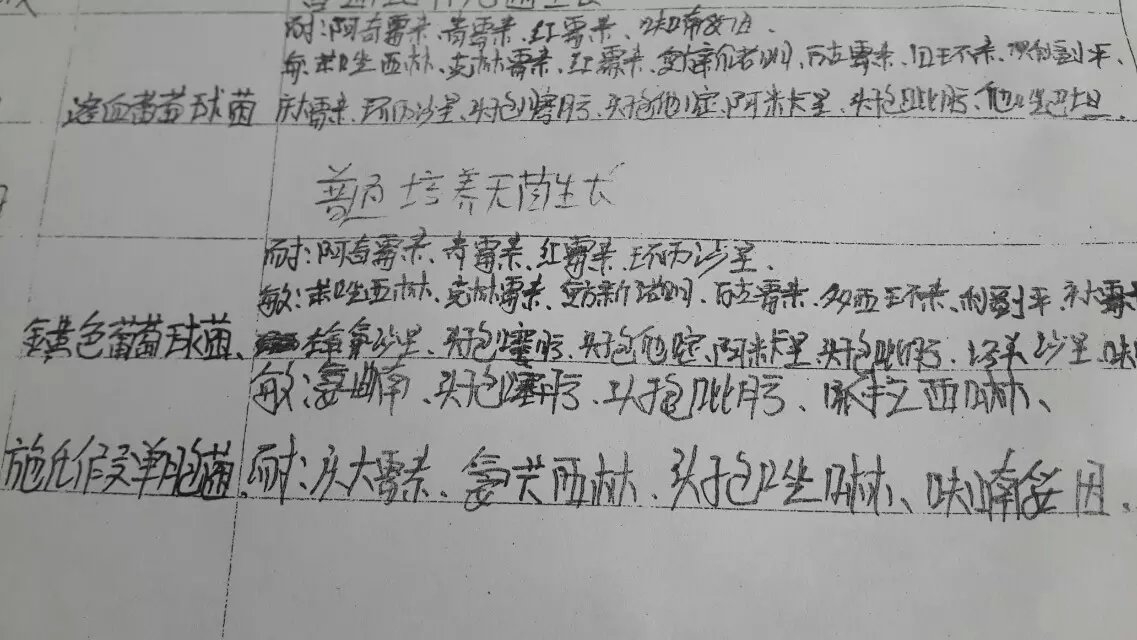 普通培养无菌生长
耐:阿奇霉素、青霉素、红霉素、呋喃妥因、
敏:苯唑西林、克林霉素、红霉素、复方新诺明、万古霉素、四环素、利奈
溶血葡萄球菌 庆大霉素、环丙沙星、头孢噻肟、头孢他啶、阿米卡星、头孢吡肟、他唑巴坦、
普通培养无菌生长
耐:阿奇霉素、青霉素、红霉素、环丙沙星、
敏:苯唑西林、克林霉素、复方新诺明、万古霉素、多西环素、利 平、庆大霉素
金黄色葡萄球菌、左氧氟沙星、头孢噻肟、头孢他啶、阿米卡星、头孢吡肟、 沙星、呋
敏:氨曲南、头孢噻肟、头孢吡肟、哌拉西林、
施氏假单胞菌、耐:庆大霉素、氨苄西林、头孢唑啉、呋喃妥因、